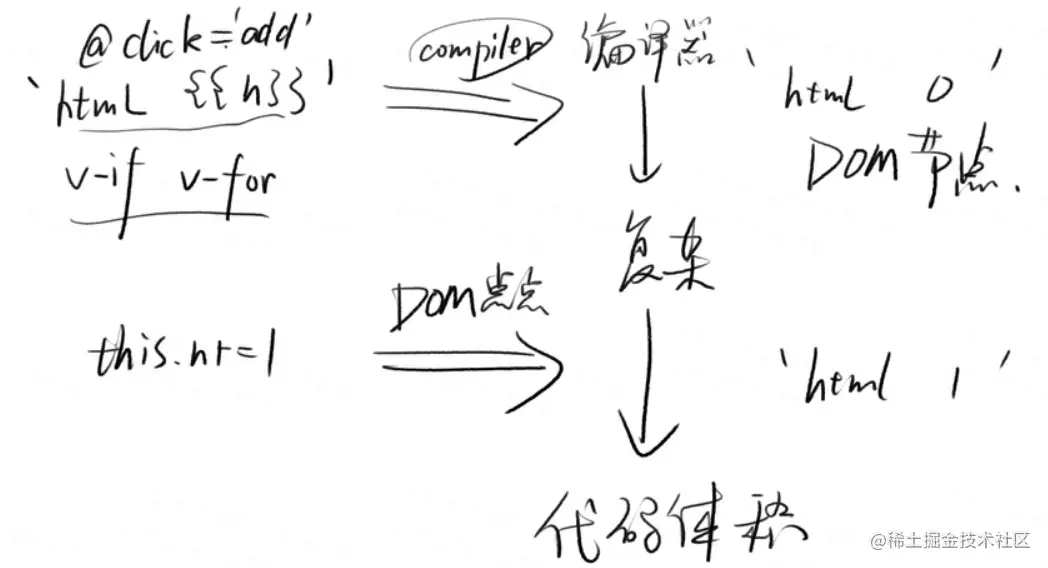 @click='add'
`html {{n}}'
v-if v-for
compiler
编译器
`html 0'
DOM 节点.
复杂
this.n+=1
DOM点点
`html 1'
代码体积
@稀土掘金技术社区